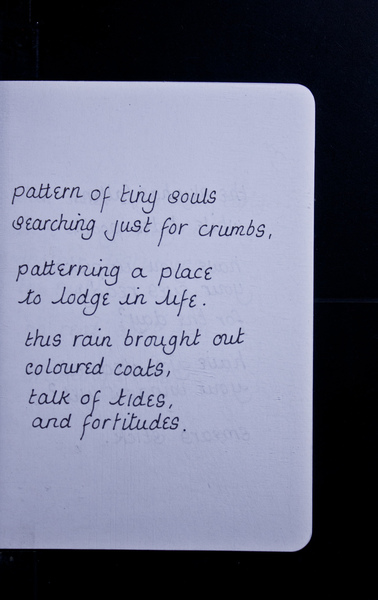 pattern of tiny souls
searching just for crumbs,
patterning a place
to lodge in life.
this rain brought out
coloured coats,
talk of tides,
and fortitudes.